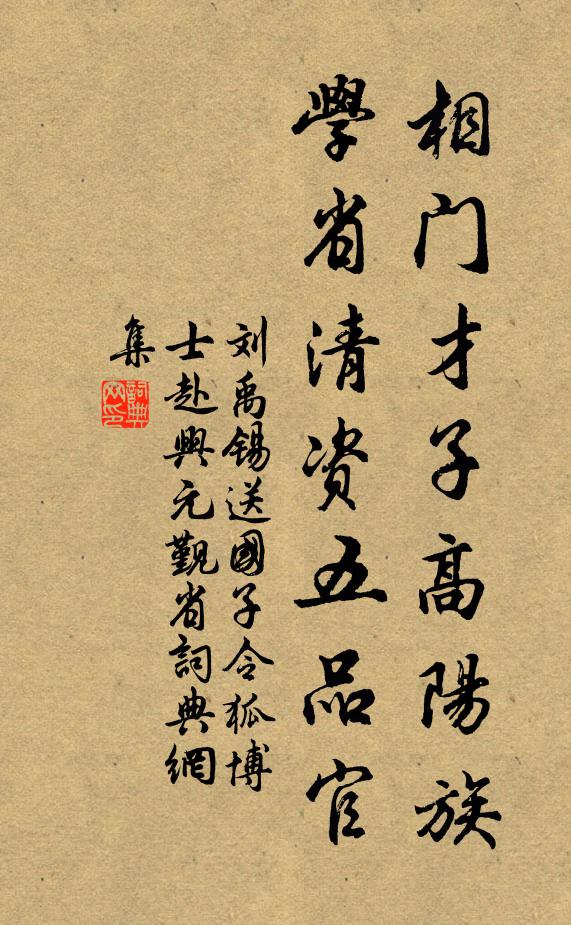 相门才子高陽族
學省清资五品官
刘禹锡送國子令狐博
士赴興元觐省詞典網
集
詞典
网印